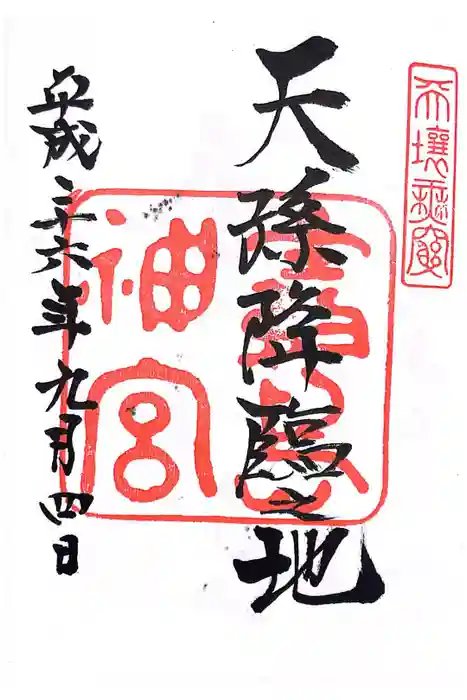 天壌無窮
天孫降臨之地
神宮
平成二十六年九月四日